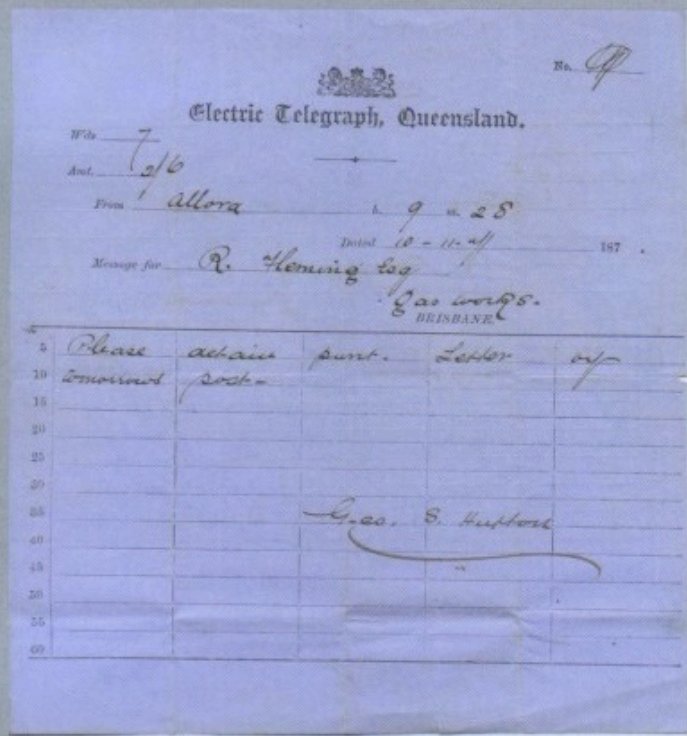 No.
Electric Telegraph, Queensland.
Wds 7
Amt. 2/6
From Allora h. 9 m. 28
Dated 10-11-71 187 .
Message for R. Fleming Esq
Gas works.
BRISBANE.
5 Please detain punt. Letter by
10 tomorrows post-
15
20
25
30
35 Geo. S. Hutton
40
45
50
55
60